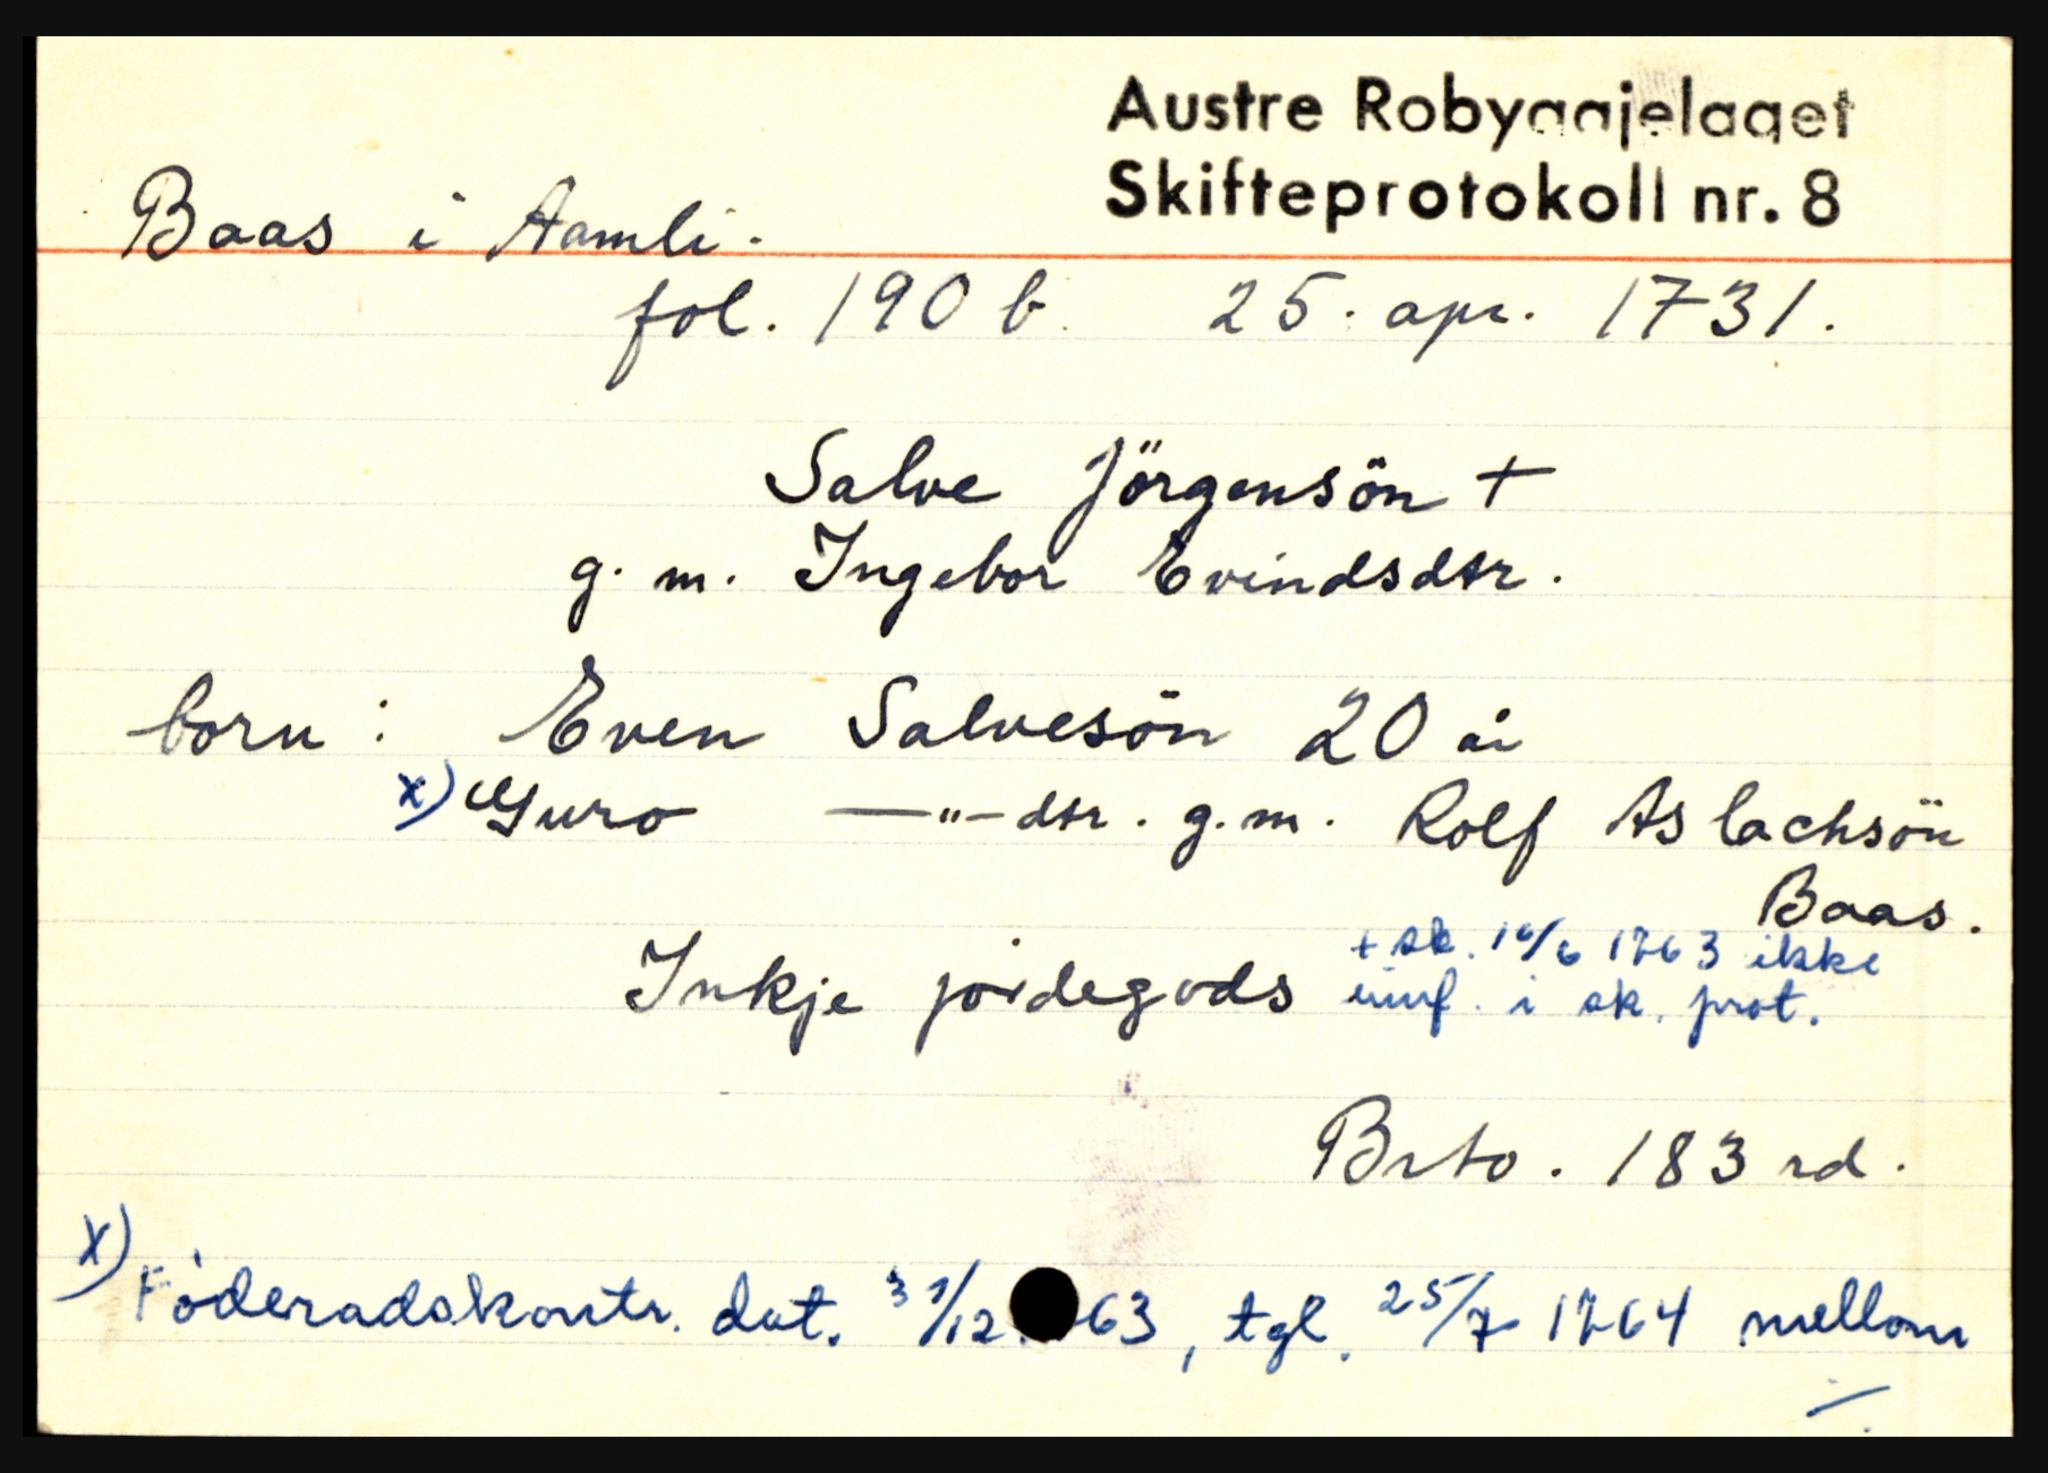 Austre Robyggjelaget
Skifteprotokoll nr. 8
Baas i Aamli.
fol. 190 b. 25. apr. 1731.
Salve Jörgensön +
g. m. Ingebor Evindsdtr.
born: Even Salvesön 20 år
x) Guro —"— dtr. g. m. Rolf Aslachsön
Baas.
+ sk. 16/6 1763 ikke
Inkje jordegods innf. i sk. prot.
Brto. 183 rd.
x) Föderadskontr. dat. 31/12. 63, tgl. 25/7 1764 mellom